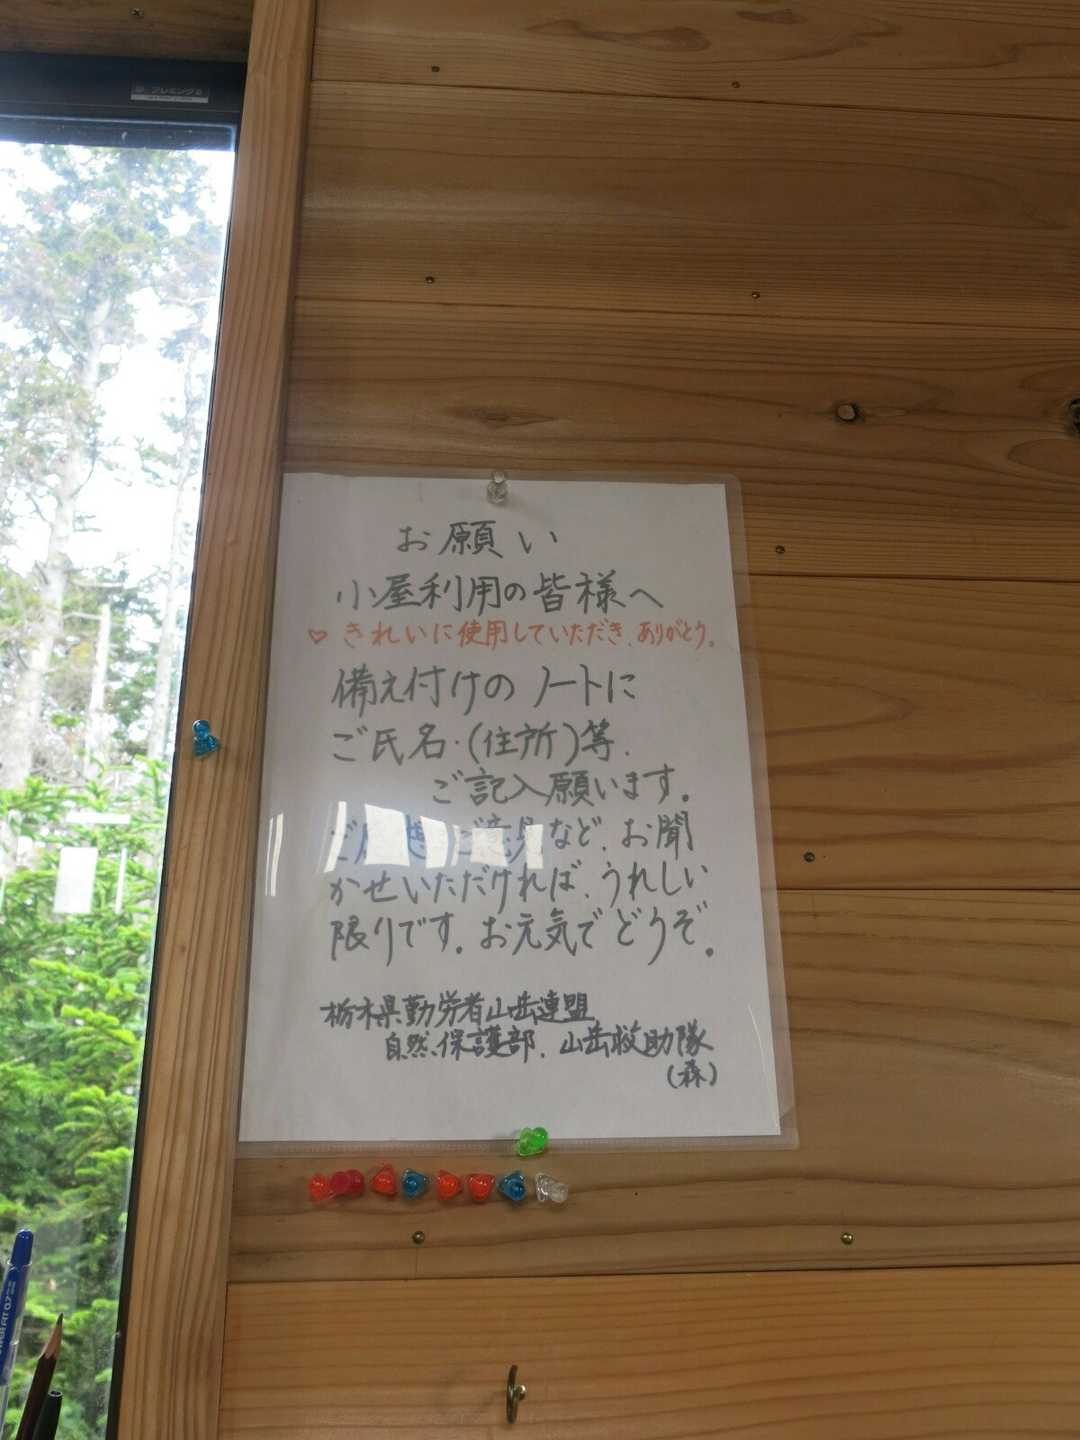 フレミングJ
お願い
小屋利用の皆様へ
♡きれいに使用していただき、ありがとう。
備え付けのノートに
ご氏名・(住所)等、
ご記入願います。
ご意見など、お聞
かせいただければ、うれしい
限りです。お元気でどうぞ。
栃木県勤労者山岳連盟
自然保護部、山岳救助隊
(森)